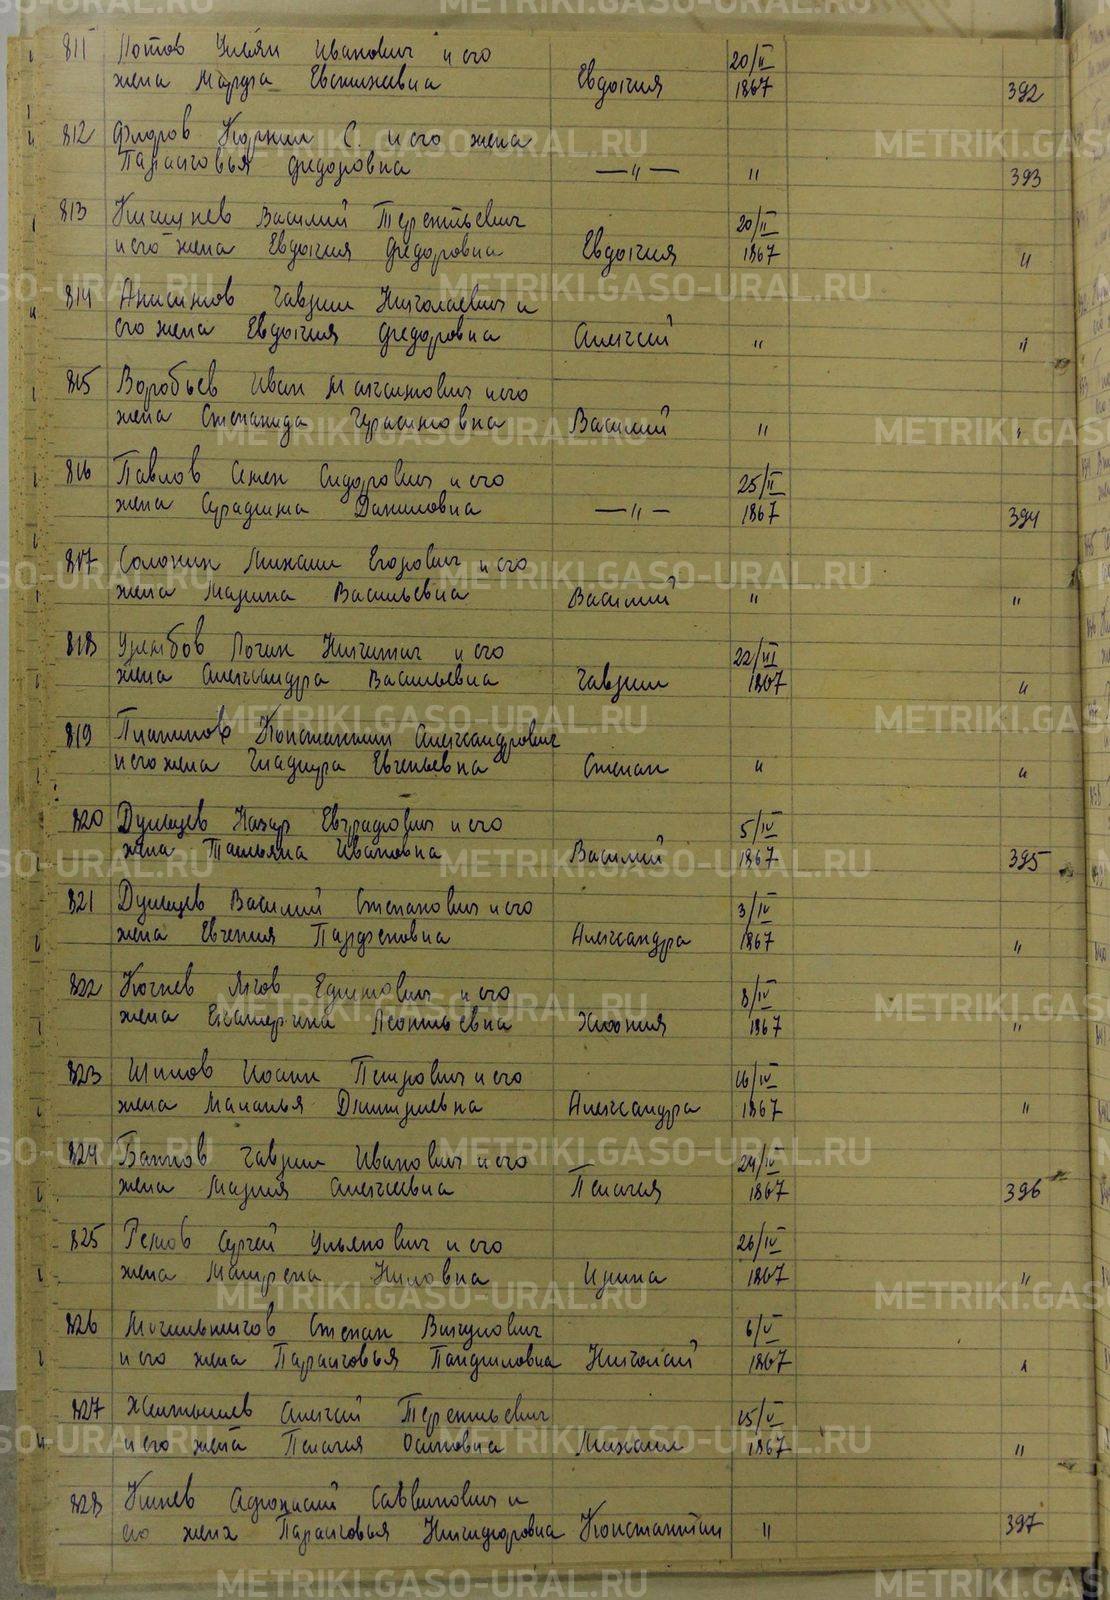 811 Потов Ульян Иванович и его 20/II
жена Марфа Евстихеевна Евдокия 1867 392
812 Флоров Корнил С. и его жена
Парасковья Федоровна —"— " 393
813 Василий Терентьевич 20/II
и его жена Евдокия Федоровна Евдокия 1867 "
814 Анисимов Гаврил Николаевич и
его жена Евдокия Федоровна Алексей " "
815 Воробьев Иван Максимович и его
жена Степанида Герасимовна Василий " "
816 Павлов Семен Сидорович и его 25/II
жена Даниловна —"— 1867 394
817 Солонин Михаил Егорович и его
жена Марина Васильевна Василий " "
818 Логин Никитич и его 22/III
жена Александра Васильевна Гаврил 1867 "
819 Платонов Константин Александрович
и его жена Евгеньевна Степан " "
820 Назар Евграфович и его 5/IV
жена Татьяна Ивановна Василий 1867 395
821 Василий Степанович и его 3/IV
жена Евгения Парфеновна Александра 1867 "
822 Кочнев Яков Ефимович и его 8/IV
жена Екатерина Леонтьевна Хиония 1867 "
823 Шилов Иоанн Петрович и его 16/IV
жена Маланья Дмитриевна Александра 1867 "
824 Гаврил Иванович и его 24/IV
жена Мария Алексеевна Пелагея 1867 396
825 Сергей Ульянович и его 26/IV
жена Матрена Ниловна Ирина 1867 "
826 Могильников Степан Викулович 6/V
и его жена Парасковья Панфиловна Николай 1867 "
827 Желтышев Алексей Терентьевич 15/V
и его жена Пелагея Осиповна Михаил 1867 "
828 Афонасий Саввинович и
его жена Парасковья Никифоровна Константин " 397
METRIKI.GASO-URAL.RU